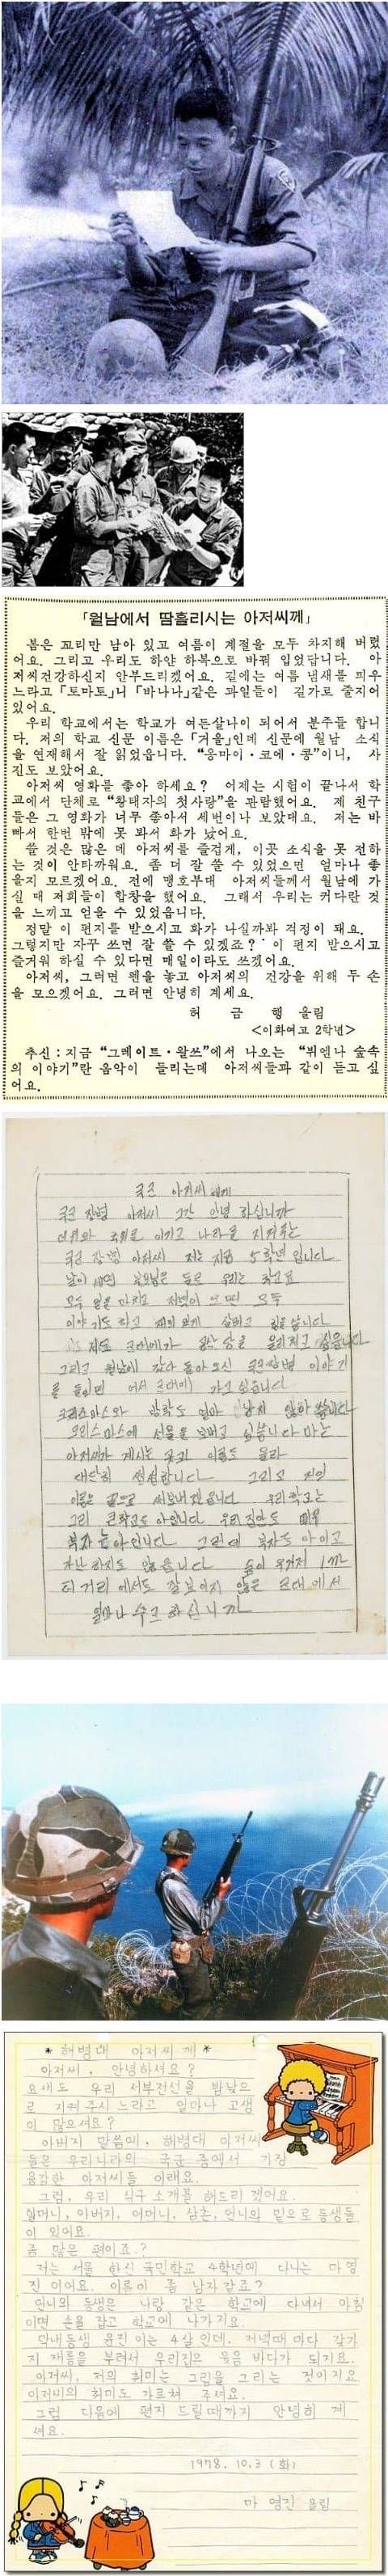 「월남에서 땀흘리시는 아저씨께」
봄은 꼬리만 남아 있고 여름이 계절을 모두 차지해 버렸
어요. 그리고 우리도 하얀 하복으로 바꿔 입었답니다. 아
저씨건강하신지 안부드리겠어요. 길에는 여름 냄새를 피우
느라고 「토마토」니 「바나나」같은 과일들이 길가로 줄지어
있어요.
우리 학교에서는 학교가 여든살나이 되어서 분주들 합니
다. 저의 학교 신문 이름은 「거울」인데 신문에 월남 소식
을 연재해서 잘 읽었읍니다. “웅마이·코에·콩”이니, 사
진도 보았어요.
아저씨 영화를 좋아 하세요? 어제는 시험이 끝나서 학
교에서 단체로 “황태자의 첫사랑”을 관람했어요. 제 친구
들은 그 영화가 너무 좋아서 세번이나 보았대요. 저는 바
빠서 한번 밖에 못 봐서 화가 났어요.
쓸 것은 많은 데 아저씨를 즐겁게, 이곳 소식을 못 전하
는 것이 안타까워요. 좀 더 잘 쓸 수 있었으면 얼마나 좋
을지 모르겠어요. 전에 맹호부대 아저씨들께서 월남에 가
실 때 저희들이 합창을 했어요. 그래서 우리는 커다란 것
을 느끼고 얻을 수 있었읍니다.
정말 이 편지를 받으시고 화가 나실까봐 걱정이 돼요.
그렇지만 자꾸 쓰면 잘 쓸 수 있겠죠? 이 편지 받으시고
즐거워 하실 수 있다면 매일이라도 쓰겠어요.
아저씨, 그러면 펜을 놓고 아저씨의 건강을 위해 두 손
을 모으겠어요. 그러면 안녕히 계세요.
허 금 행 올림
<이화여고 2학년>
추신:지금 “그레이트·왈쓰”에서 나오는 “뷔엔나 숲속
의 이야기”란 음악이 들리는데 아저씨들과 같이 듣고 싶
어요.
국군 아저씨에게
국군 장병 아저씨 그간 안녕 하십니까
더위와 추위를 이기고 나라를 지켜주는
국군 장병 아저씨 저는 지금 5학년입니다
날이 새면 부모님은 들로 우리는 학교로
모두 일을 마치고 저녁이 오면 모두
이야기도 하고 재미있게 살고 있습니다
저도 군대에가
그리고 월남에 갔다 돌아오신 국군장병 이야기
를 들으면 어서 군대에 가고 싶습니다
크리스마스와 방학도 얼마 남지 않았습니다
크리스마스에 선물을 보내고 싶습니다 마는
아저씨가 계시는 곳과 이름도 몰라
대단히 섭섭합니다 그리고 저의
이름은 끝으로 써보내겠습니다 우리학교는
그리 큰학교도 아닙니다 우리집안도 매우
부자는 아닙니다 그런데 부자도 아니고
가난하지도 않습니다 숲이 우거져 1m
터 거리에서도 잘 보이지 않은 군대에서
얼마나 수고 하십니까
* 해병대 아저씨께 *
아저씨, 안녕하셔요?
요새도 우리 서부전선을 밤낮으
로 지켜 주시느라고 얼마나 고생
이 많으셔요?
아버지 말씀에, 해병대 아저씨
들은 우리나라의 국군 중에서 가장
용감한 아저씨들 이래요.
그럼, 우리 식구 소개를 해드리겠어요.
할머니, 아버지, 어머니, 삼촌, 언니의 밑으로 동생들
이 있어요.
좀 많은 편이죠?
저는 서울 한신 국민학교 4학년에 다니는 마영
진이어요. 이름이 좀 남자 같죠?
언니와 동생은 나랑 같은 학교에 다녀서 아침
이면 손을 잡고 학교에 나가지요.
막내동생 윤진이는 4살인데, 저녁때마다 갖가
지 재롱을 부려서 우리집은 웃음 바다가 되지요.
아저씨, 저의 취미는 그림을 그리는 것이지요
아저씨의 취미도 가르쳐 주셔요.
그럼 다음에 편지 드릴때까지 안녕히 계
셔요.
1978. 10. 3 (화)
마 영진 올림